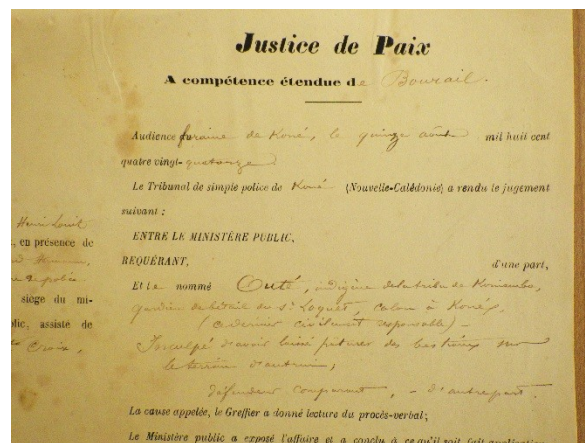 Justice de Paix
A compétence étendue de Bourail.
Audience foraine de Koné, le quinze août mil huit cent
quatre vingt-quatorze
Le Tribunal de simple police de Koné (Nouvelle-Calédonie) a rendu le jugement
suivant :
ENTRE LE MINISTÈRE PUBLIC,
REQUÉRANT, d'une part,
Et le nommé Outé, indigène de la tribu de
gardien de bétail du Sr Loquet, colon à Koné,
(ce dernier civilement responsable) –
Inculpé d'avoir laissé pâturer des bestiaux sur
le terrain d'autrui,
défendeur comparant, – d'autre part.
La cause appelée, le Greffier a donné lecture du procès-verbal;
Le Ministère public a exposé l'affaire et a conclu à ce qu'il soit fait application
Henri Louit
, en présence de
siège du mi-
blic, assisté de
Croix,